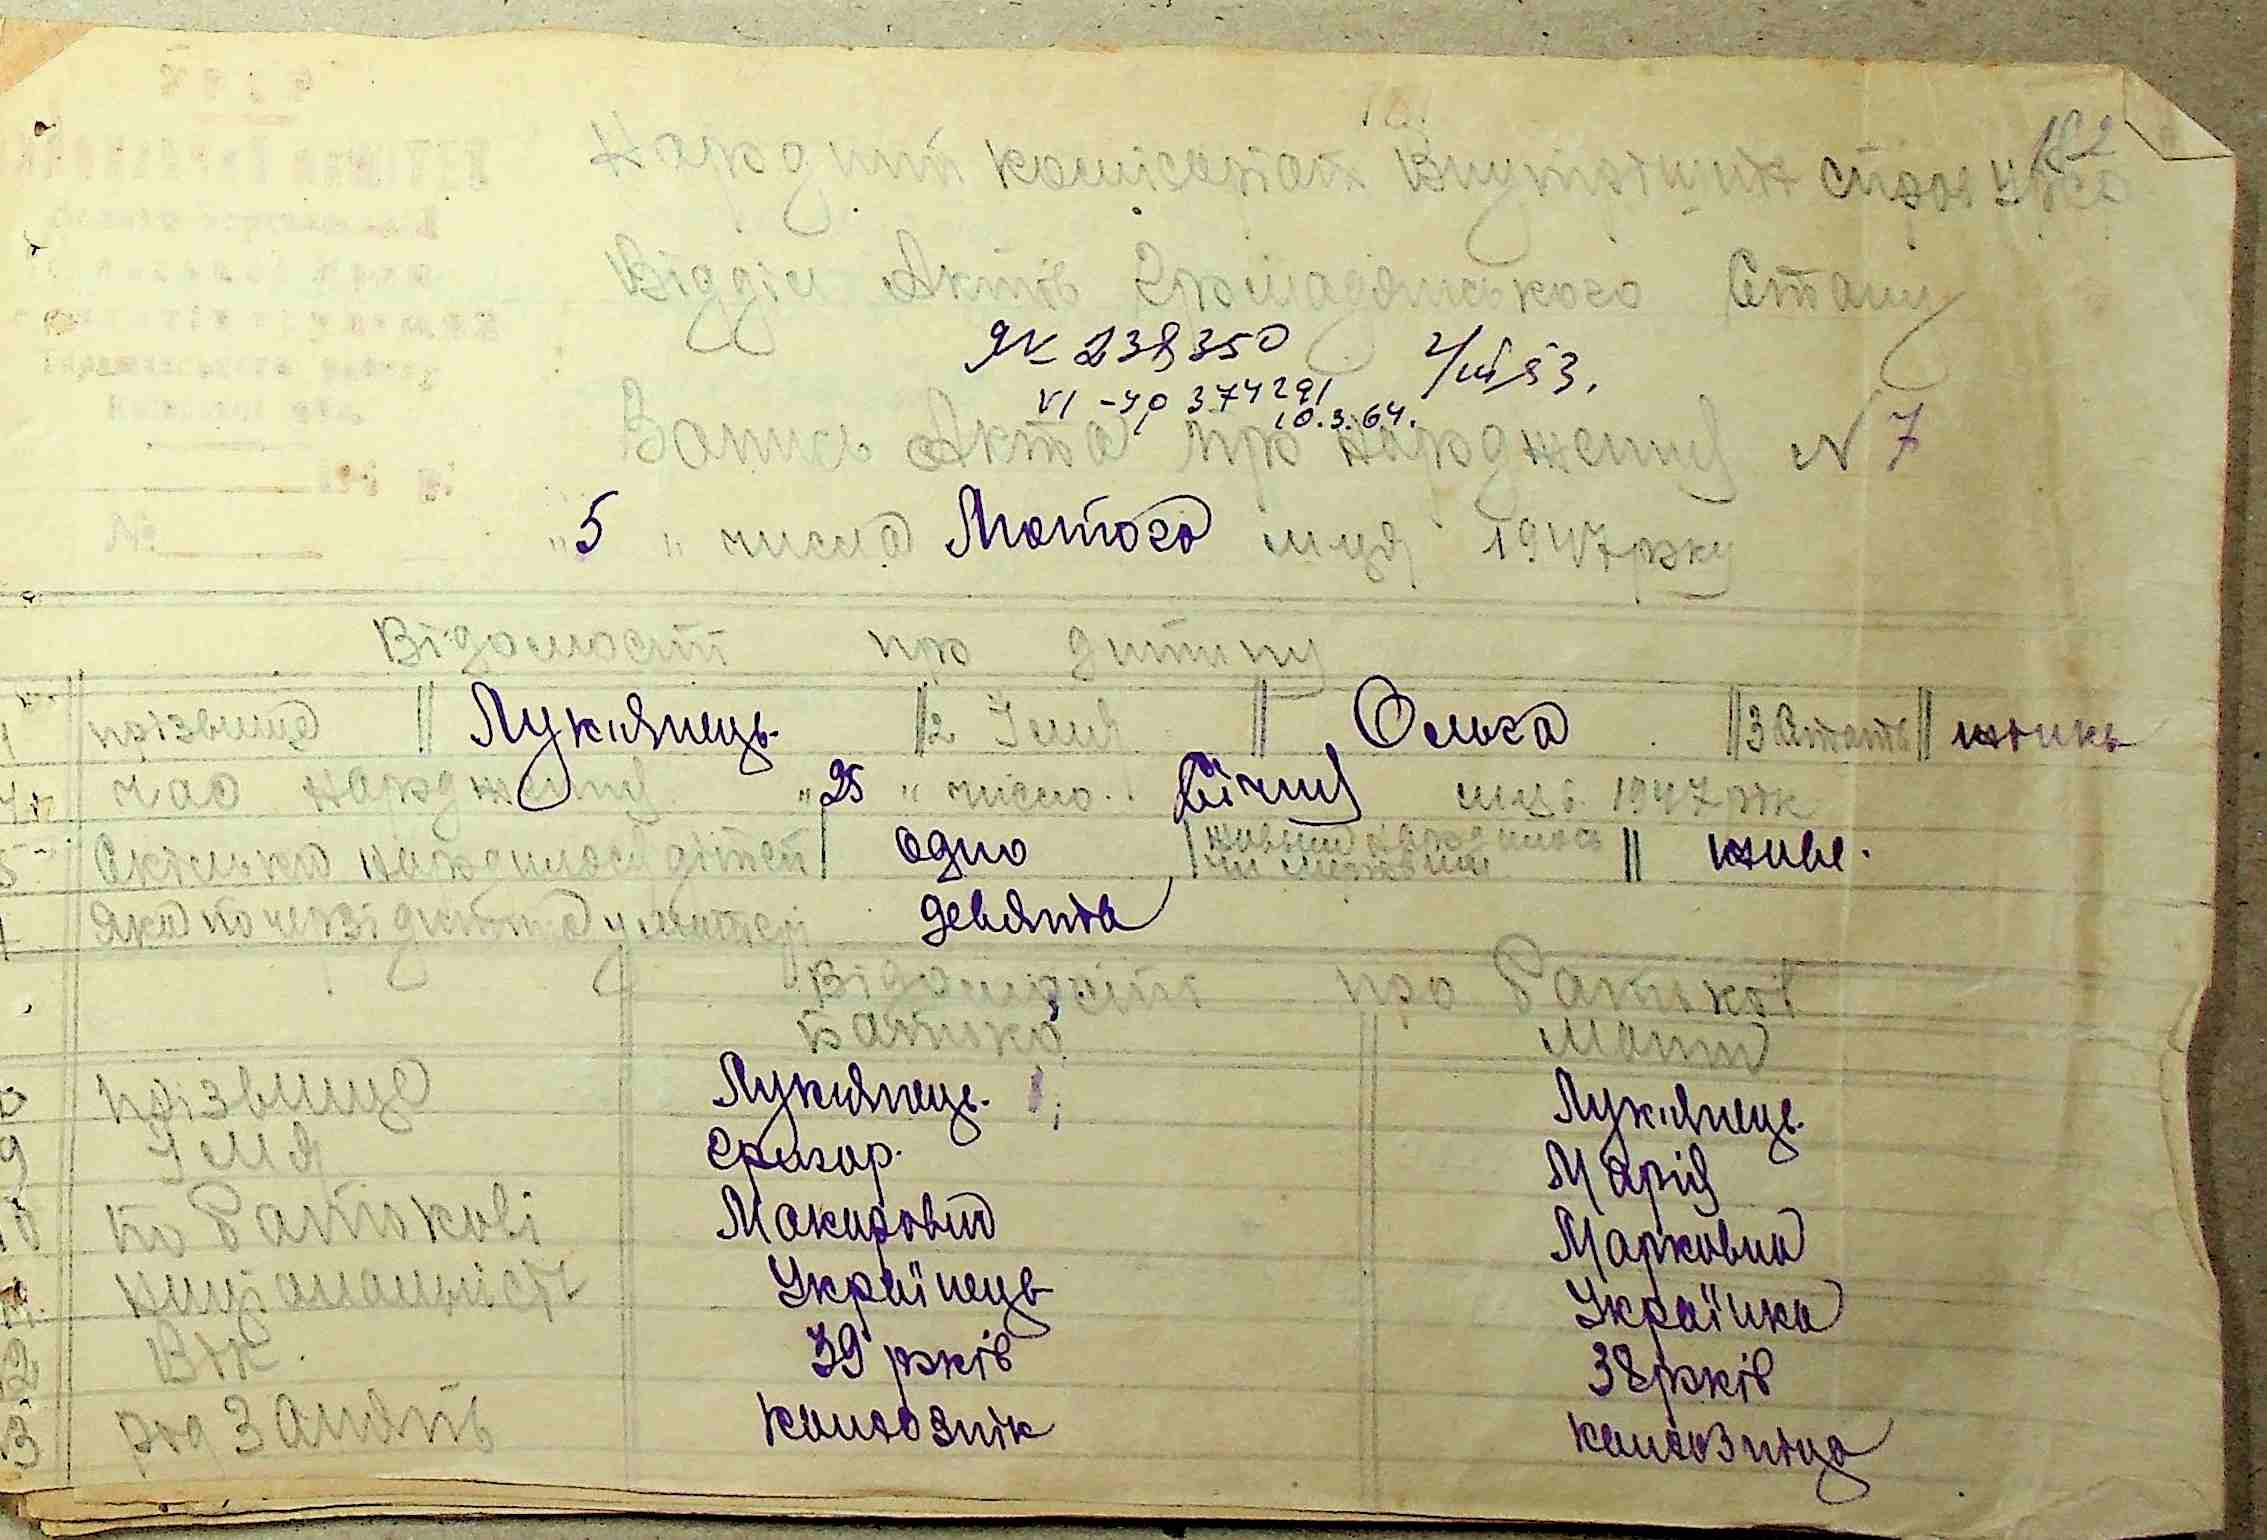 182
Народний комісаріат Внутрішних справ УРСР
Відділ Актів Громадянського Стану
ЯК 238350 2/III 53.
VI-УР 374291
10.3.64.
Запись Акта про народження N 7
"5" числа Лютого м-ця 1947 року
Відомості про дитину
прізвище Лукіянець 2 Імя Ольга 3 Стать жіноч
час народження "25" число Січня м-ця 1947 рок
5 Скілько народилося дітей одно живим народилося чи мертвим живе.
Яка по черзі дитина у матері девята
Відомості про батьків
Батько Мати
прізвище Лукіянець Лукіянець
9 Імя Григор Марія
10 по батькові Макарович Марковна
11 національність Українець Українка
12 Вік 39 років 38 років
13 род занять колгозник колгозница